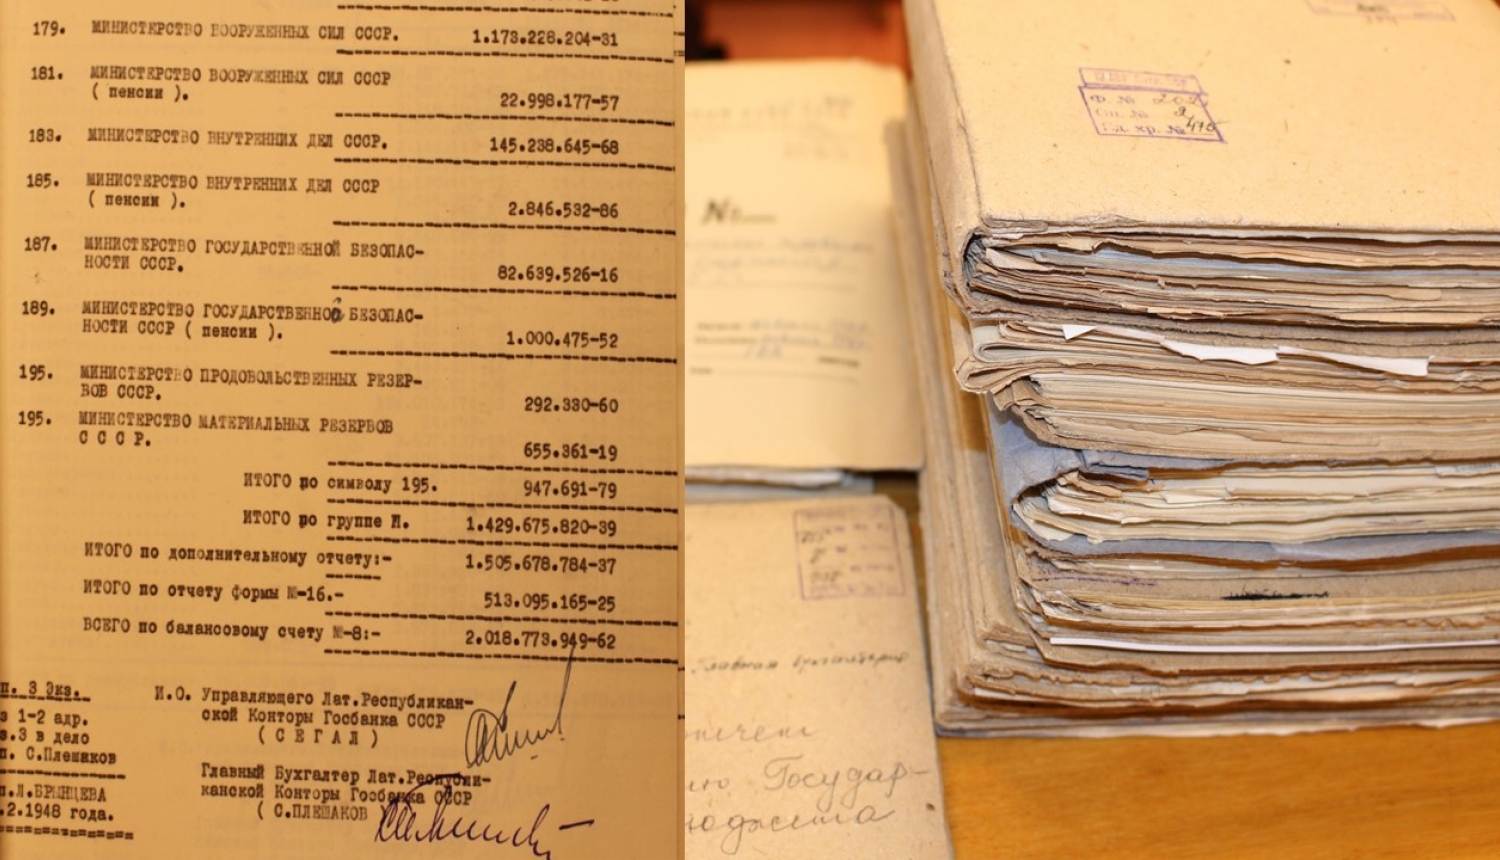 179. МИНИСТЕРСТВО ВООРУЖЕННЫХ СИЛ СССР. 1.173.228.204-31
181. МИНИСТЕРСТВО ВООРУЖЕННЫХ СИЛ СССР
( пенсии ). 22.998.177-57
183. МИНИСТЕРСТВО ВНУТРЕННИХ ДЕЛ СССР. 145.238.645-68
185. МИНИСТЕРСТВО ВНУТРЕННИХ ДЕЛ СССР
( пенсии ). 2.846.532-86
187. МИНИСТЕРСТВО ГОСУДАРСТВЕННОЙ БЕЗОПАС-
НОСТИ СССР. 82.639.526-16
189. МИНИСТЕРСТВО ГОСУДАРСТВЕННОЙ БЕЗОПАС-
НОСТИ СССР ( пенсии ). 1.000.475-52
195. МИНИСТЕРСТВО ПРОДОВОЛЬСТВЕННЫХ РЕЗЕР-
ВОВ СССР. 292.330-60
195. МИНИСТЕРСТВО МАТЕРИАЛЬНЫХ РЕЗЕРВОВ
С С С Р. 655.361-19
ИТОГО по символу 195. 947.691-79
ИТОГО по группе И. 1.429.675.820-39
ИТОГО по дополнительному отчету:- 1.505.678.784-37
ИТОГО по отчету формы №-16.- 513.095.165-25
ВСЕГО по балансовому счету №-8:- 2.018.773.949-62
п. 3 Экз.
з 1-2 адр.
з.3 в дело
п. С.Плешаков
п.Л.БРЫНЦЕВА
.2.1948 года.
И.О. Управляющего Лат.Республикан-
ской Конторы Госбанка СССР
( С Е Г А Л )
Главный Бухгалтер Лат.Республи-
канской Конторы Госбанка СССР
( С.ПЛЕШАКОВ )
№
Главная бухгалтерия
Государ-
Ф. № 202
Оп. № 2
Ед. хр. № 415